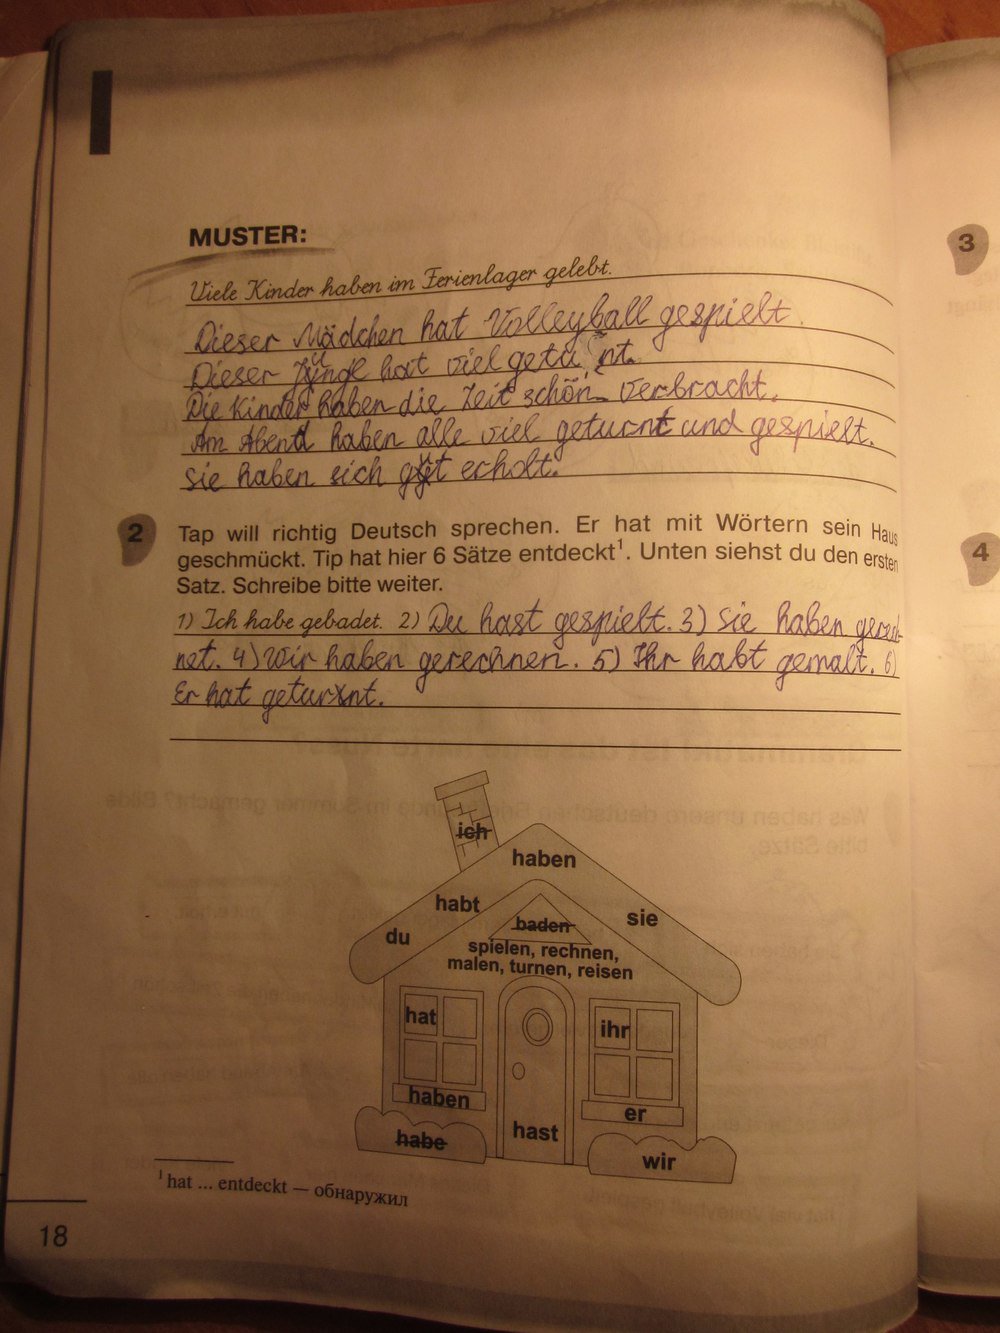 MUSTER:
Viele Kinder haben im Ferienlager gelebt.
Dieser Mädchen hat Volleyball gespielt.
Dieser Junge hat viel geturnt.
Die Kinder haben die Zeit schön verbracht.
Am Abend haben alle viel geturnt und gespielt.
Sie haben sich gut erholt.
2 Tap will richtig Deutsch sprechen. Er hat mit Wörtern sein Haus
geschmückt. Tip hat hier 6 Sätze entdeckt¹. Unten siehst du den ersten
Satz. Schreibe bitte weiter.
1) Ich habe gebadet. 2) Du hast gespielt. 3) Sie haben
4) Wir haben gerechnen. 5) Ihr habt gemalt. 6)
Er hat geturnt.
ich
haben
habt
sie
du
baden
spielen, rechnen,
malen, turnen, reisen
hat
ihr
haben
er
habe
hast
wir
¹ hat ... entdeckt — обнаружил
18
3
4